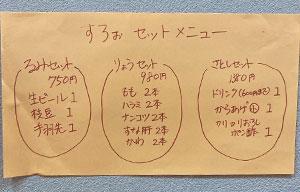 すろぉ セットメニュー
るみセット
750円
生ビール 1
枝豆 1
手羽先 1
りょうセット
980円
もも 2本
ハラミ 2本
ナンコツ 2本
すなぎも 2本
かわ 2本
さとしセット
1380円
ドリンク(600円まで) 1
からあげ 小 1
カリカリおろし
ポン酢 1